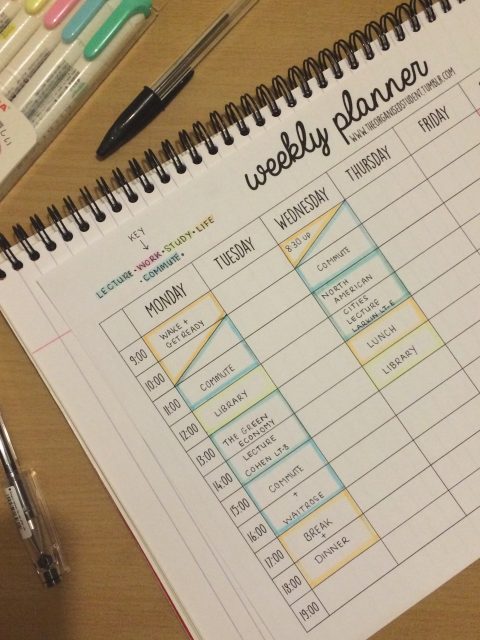 weekly planner
WWW.THEORGANISEDSTUDENT.TUMBLR.COM
KEY
LECTURE • WORK • STUDY • LIFE
• COMMUTE •
MONDAY
TUESDAY
WEDNESDAY
THURSDAY
FRIDAY
9:00
10:00
11:00
12:00
13:00
14:00
15:00
16:00
17:00
18:00
19:00
WAKE +
GET READY
COMMUTE
LIBRARY
THE GREEN
ECONOMY
LECTURE
COHEN LT-B
COMMUTE
+
WAITROSE
BREAK
+
DINNER
8:30 UP
COMMUTE
NORTH
AMERICAN
CITIES
LECTURE
LARKIN LT-E
LUNCH
LIBRARY